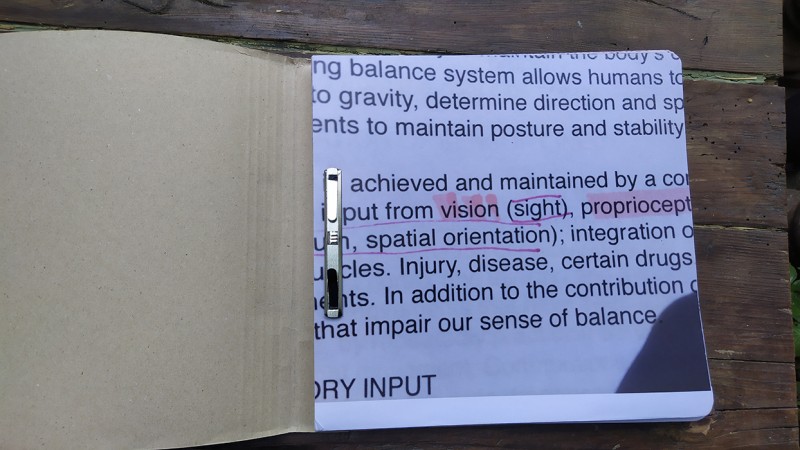 ng balance system allows humans to
to gravity, determine direction and sp
ents to maintain posture and stability
achieved and maintained by a cor
input from vision (sight), propriocept
spatial orientation); integration o
uscles. Injury, disease, certain drugs
ents. In addition to the contribution
that impair our sense of balance.
ORY INPUT